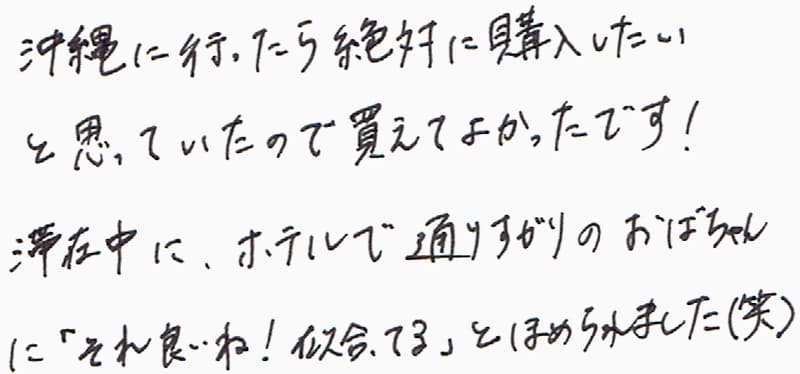 沖縄に行ったら絶対に購入したい
と思っていたので買えてよかったです!
滞在中に、ホテルで通りすがりのおばちゃん
に「それ良いね!似合ってる」とほめられました(笑)